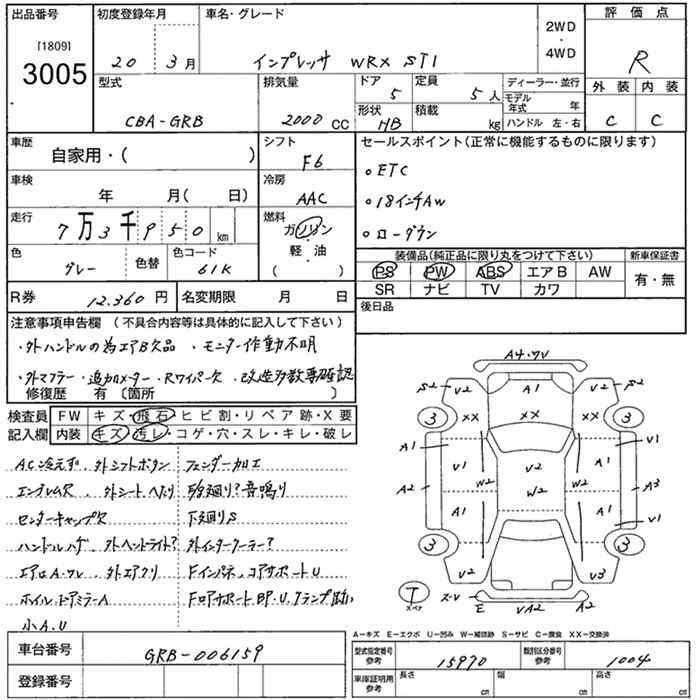 出品番号 初度登録年月 車名・グレード 2WD・4WD 評価点
[1809]
3005 20 3月 インプレッサ WRX STI R
型式 排気量 ドア 5 定員 5人 ディーラー・並行 外装 内装
CBA-GRB 2000 CC 形状 HB 積載 kg モデル年式 年 ハンドル 左・右 C C
車歴 シフト セールスポイント(正常に機能するものに限ります)
自家用・( ) F6 ・ETC
車検 年 月( 日) 冷房 AAC ・18インチAW
走行 7万3千950km 燃料 ガソリン・軽・油 ( ) ・ローダウン
色 グレー 色替 色コード 61K
装備品(純正品に限り丸をつけて下さい) 新車保証書
PS PW ABS エアB AW 有・無
SR ナビ TV カワ
R券 12.360円 名変期限 月 日 後日品
注意事項申告欄(不具合内容等は具体的に記入して下さい)
・外ハンドルの為エアB欠品 ・モニター作動不明
・外マフラー・追加メーター・Rワイパー欠・改造多数要確認
修復歴 有〔箇所 〕
検査員記入欄 FW キズ・飛石・ヒビ割・リペア跡・X要
内装 キズ・汚レ・コゲ・穴・スレ・キレ・破レ
AC冷えず.外シフトボタン フェンダー加工
エンブレム欠.外シートへたり
センターキャップ欠 下廻りS
ハンドルハゲ.外ヘッドライト? 外インタークーラー?
エアロA・ワレ.外エアクリ Fインパネ.コアサポートU
ホイル.ドアミラーA
小A.U
A4・ワレ
S2 V2 A1 V2 S2
3 XX XX XX 3
A1 V1 V2 V1 A1
A2 W2 W2 W2 A3
A1 A1 V1
3 3
V2 V3
T スペア エーV E VA2 A2
A―キズ E―エクボ U―凹み W―補修跡 S―サビ C―腐食 XX―交換済
車台番号 GRB-006159 型式指定番号参考 15970 類別区分番号参考 1004
登録番号 車庫証明用参考 長さ cm 幅 cm 高さ cm